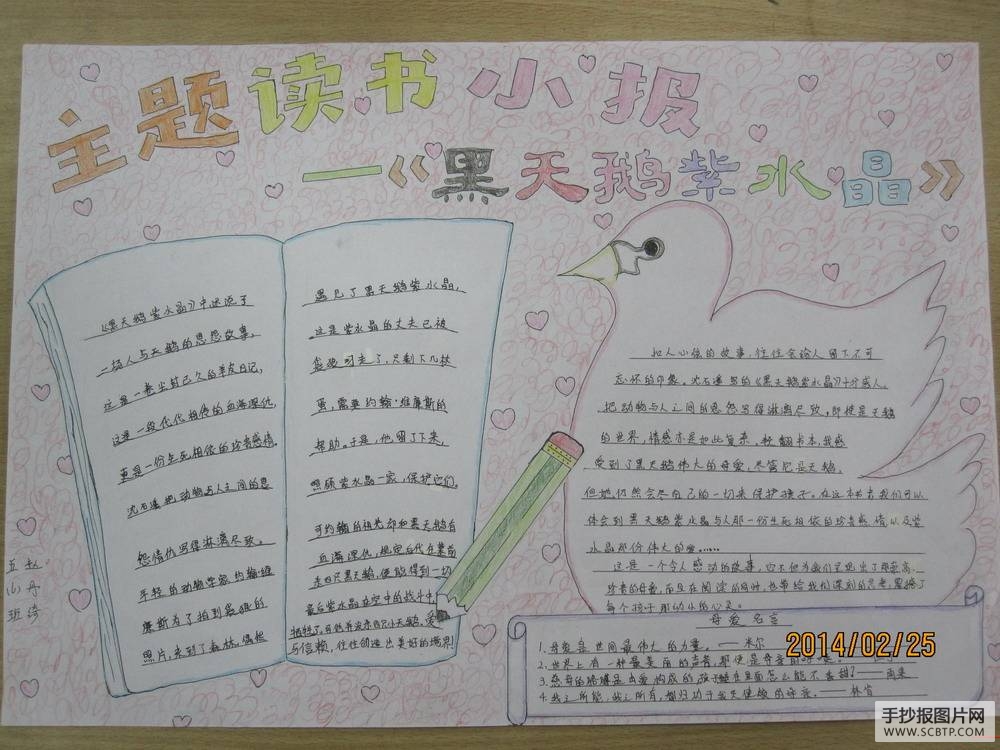 主题读书小报
—《黑天鹅紫水晶》
《黑天鹅紫水晶》中述说了
一场人与天鹅的恩怨故事。
这是一卷尘封已久的羊皮日记,
这是一段代代相传的血海深仇,
更是一份生死相依的珍贵感情。
沈石溪把动物与人之间的恩
怨情仇写得淋漓尽致。
年轻的动物学家约翰·维
廉斯为了拍到
照片,来到了森林。偶然
遇见了黑天鹅紫水晶,
这是紫水晶的丈夫已被
走了,只剩下几枚
蛋,需要约翰·维廉斯的
帮助。于是,他留了下来,
照顾紫水晶一家,保护它们。
可约翰的祖先却和黑天鹅有
血海深仇,规定后代在墓前
黑天鹅,便能得到一切
最后紫水晶在空中的战斗中
牺牲了,
与信赖,往往创造出美好的境界!
扣人心弦的故事,往往会给人留下不可
忘怀的印象。沈石溪写的《黑天鹅紫水晶》十分感人。
把动物与人之间的恩怨写得淋漓尽致,即使是天鹅
的世界,情感亦是如此复杂。轻翻书本,我感
受到了黑天鹅伟大的母爱,尽管它是天鹅,
但她仍然会尽自己的一切来保护孩子。在这本书者我们可以
体会到黑天鹅紫水晶与人那一份生死相依的珍贵感情以及紫
水晶那份伟大的爱……
这是一个令人感动的故事,它不但为我们展现出了那崇高、
珍贵的母爱,而且在阅读的同时,也带给我们深刻的思考,震撼了
每个孩子那幼小的心灵。
母爱名言
1.母爱是世间最伟大的力量。——米尔
2.世界上有一种最美丽的声音,那便是母亲的呼唤。
3.慈母的胳膊是由爱构成的,孩子睡在里面怎么能不香甜?——雨果
4.我之所能,我之所有,都归功于我天使般的母亲。——林肯
五赵
山丹
班琦
2014/02/25
手抄报图片网
WWW.SCBTP.COM